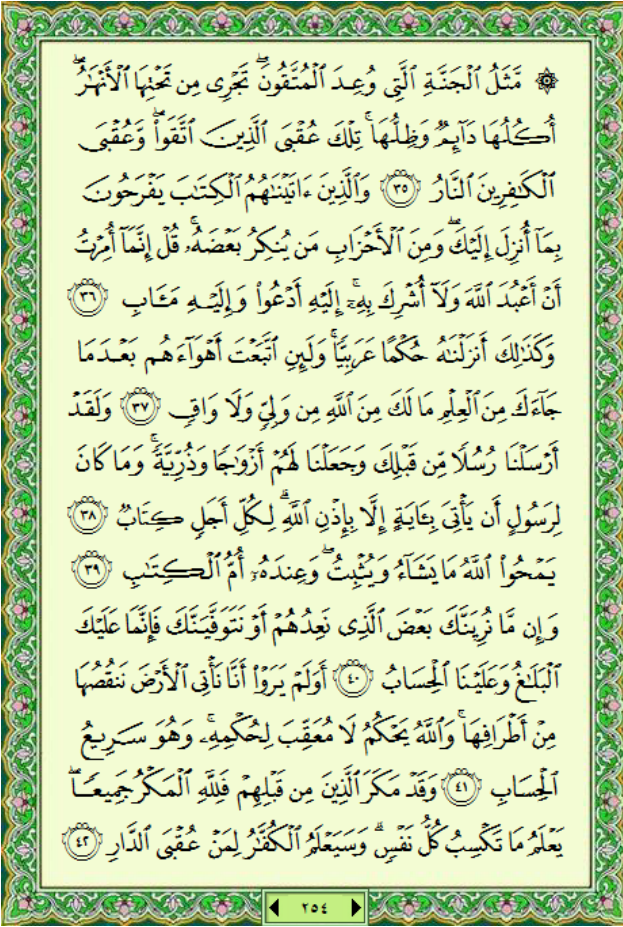 ۞ مَّثَلُ ٱلْجَنَّةِ ٱلَّتِى وُعِدَ ٱلْمُتَّقُونَ ۖ تَجْرِى مِن تَحْتِهَا ٱلْأَنْهَٰرُ ۖ
أُكُلُهَا دَآئِمٌ وَظِلُّهَا ۚ تِلْكَ عُقْبَى ٱلَّذِينَ ٱتَّقَوا۟ ۖ وَّعُقْبَى
ٱلْكَٰفِرِينَ ٱلنَّارُ ٣٥ وَٱلَّذِينَ ءَاتَيْنَٰهُمُ ٱلْكِتَٰبَ يَفْرَحُونَ
بِمَآ أُنزِلَ إِلَيْكَ ۖ وَمِنَ ٱلْأَحْزَابِ مَن يُنكِرُ بَعْضَهُۥ ۚ قُلْ إِنَّمَآ أُمِرْتُ
أَنْ أَعْبُدَ ٱللَّهَ وَلَآ أُشْرِكَ بِهِۦٓ ۚ إِلَيْهِ أَدْعُوا۟ وَإِلَيْهِ مَـَٔابِ ٣٦
وَكَذَٰلِكَ أَنزَلْنَٰهُ حُكْمًا عَرَبِيًّا ۚ وَلَئِنِ ٱتَّبَعْتَ أَهْوَآءَهُم بَعْدَمَا
جَآءَكَ مِنَ ٱلْعِلْمِ مَا لَكَ مِنَ ٱللَّهِ مِن وَلِىٍّ وَلَا وَاقٍ ٣٧ وَلَقَدْ
أَرْسَلْنَا رُسُلًا مِّن قَبْلِكَ وَجَعَلْنَا لَهُمْ أَزْوَٰجًا وَذُرِّيَّةً ۚ وَمَا كَانَ
لِرَسُولٍ أَن يَأْتِىَ بِـَٔايَةٍ إِلَّا بِإِذْنِ ٱللَّهِ ۗ لِكُلِّ أَجَلٍ كِتَابٌ ٣٨
يَمْحُوا۟ ٱللَّهُ مَا يَشَآءُ وَيُثْبِتُ ۖ وَعِندَهُۥٓ أُمُّ ٱلْكِتَٰبِ ٣٩
وَإِن مَّا نُرِيَنَّكَ بَعْضَ ٱلَّذِى نَعِدُهُمْ أَوْ نَتَوَفَّيَنَّكَ فَإِنَّمَا عَلَيْكَ
ٱلْبَلَٰغُ وَعَلَيْنَا ٱلْحِسَابُ ٤٠ أَوَلَمْ يَرَوْا۟ أَنَّا نَأْتِى ٱلْأَرْضَ نَنقُصُهَا
مِنْ أَطْرَافِهَا ۚ وَٱللَّهُ يَحْكُمُ لَا مُعَقِّبَ لِحُكْمِهِۦ ۚ وَهُوَ سَرِيعُ
ٱلْحِسَابِ ٤١ وَقَدْ مَكَرَ ٱلَّذِينَ مِن قَبْلِهِمْ فَلِلَّهِ ٱلْمَكْرُ جَمِيعًا ۖ
يَعْلَمُ مَا تَكْسِبُ كُلُّ نَفْسٍ ۗ وَسَيَعْلَمُ ٱلْكُفَّٰرُ لِمَنْ عُقْبَى ٱلدَّارِ ٤٢
٢٥٤